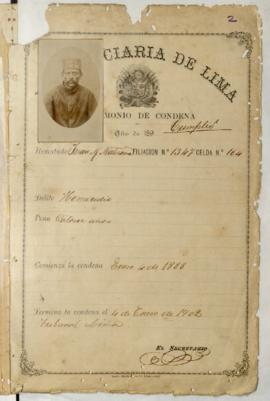 2
CIARIA DE LIMA
MONIO DE CONDENA
Año de 189
Cumplió
Rematado Juan FILIACION N.º 1347 CELDA N.º 164
Delito Homicidio
Pena Catorce años
Comienza la condena Enero 4 de 1888
Termina la condena el 4 de Enero de 1902
Tribunal Lima
EL SECRETARIO